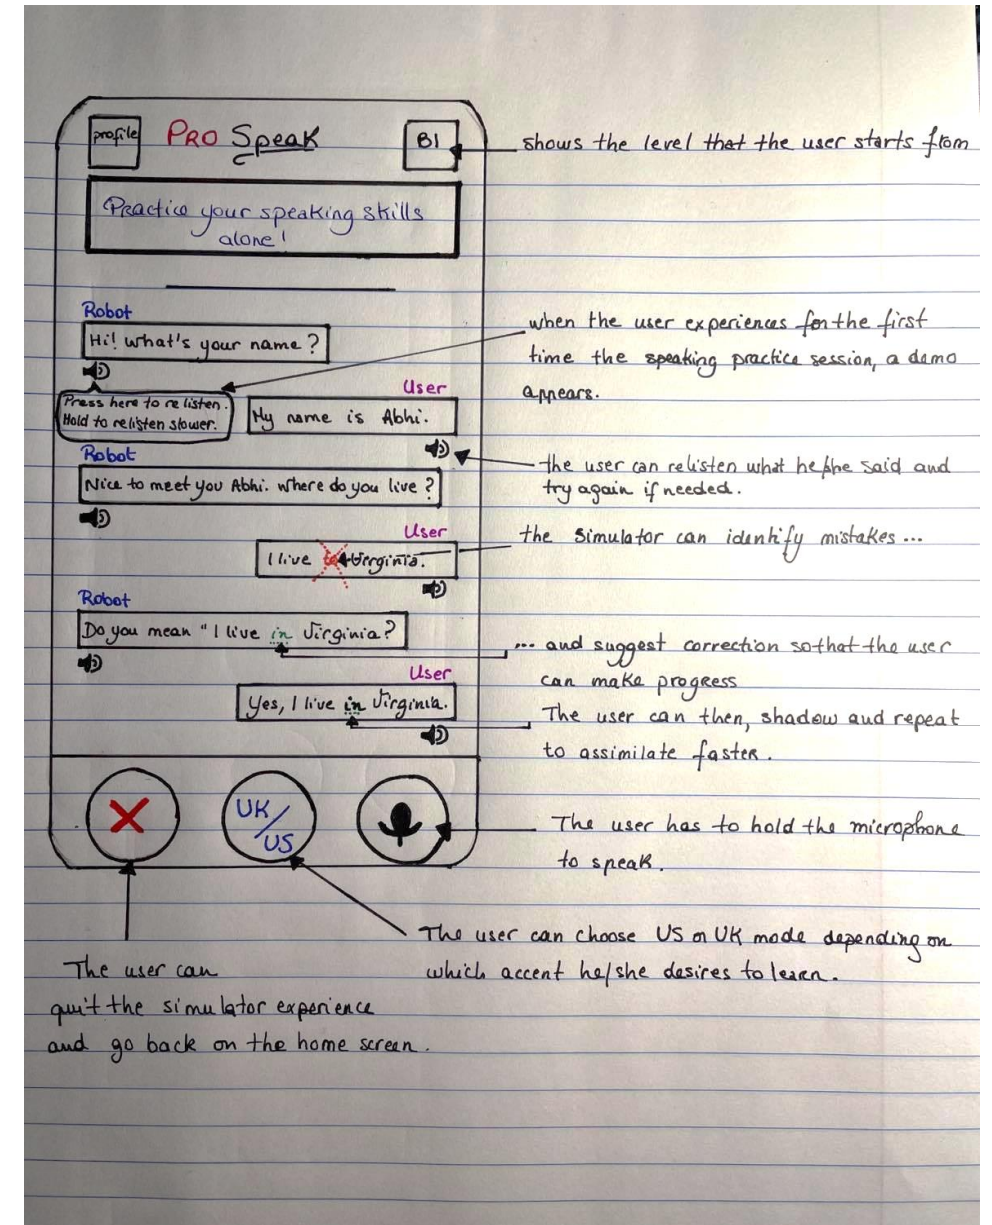 profile PRO Speak B1
shows the level that the user starts from
Practice your speaking skills
alone!
Robot
Hi! what's your name?
when the user experiences for the first
time the speaking practice session, a demo
appears.
Press here to relisten.
Hold to relisten slower.
User
My name is Abhi.
the user can relisten what he/she said and
try again if needed.
Robot
Nice to meet you Abhi. Where do you live?
User
I live to Virginia.
the simulator can identify mistakes...
Robot
Do you mean "I live in Virginia?
... and suggest correction so that the user
can make progress
User
Yes, I live in Virginia.
The user can then, shadow and repeat
to assimilate faster.
UK/US
The user has to hold the microphone
to speak.
The user can choose US or UK mode depending on
which accent he/she desires to learn.
The user can
quit the simulator experience
and go back on the home screen.